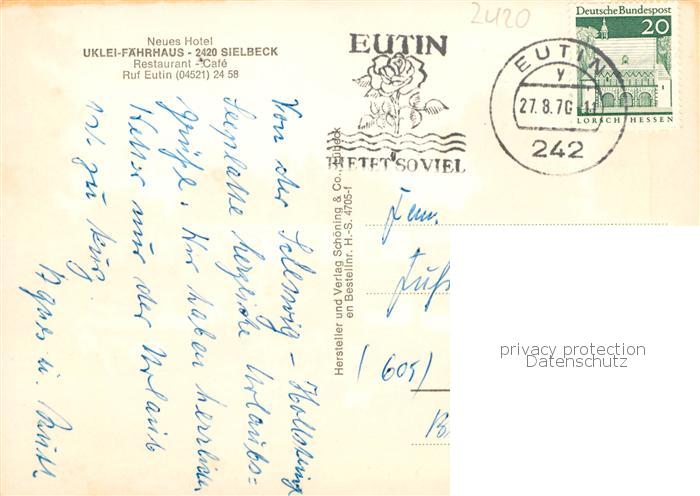 Neues Hotel
UKLEI-FÄHRHAUS - 2420 SIELBECK
Restaurant - Café
Ruf Eutin (04521) 24 58
2420
EUTIN
BIETET SO VIEL
EUTIN
y
27.8.70
242
Deutsche Bundespost
20
LORSCH HESSEN
Hersteller und Verlag Schöning & Co., Lübeck
en Bestellnr. H.-S. 4705-f
Von der Schleswig-Hollsteing
Seeplatte herzliche Urlaubs-
grüße. Wir haben herrliches
Wetter nur der Urlaub
ist zu kurz
Agnes u.
Fam.
(605)
privacy protection
Datenschutz